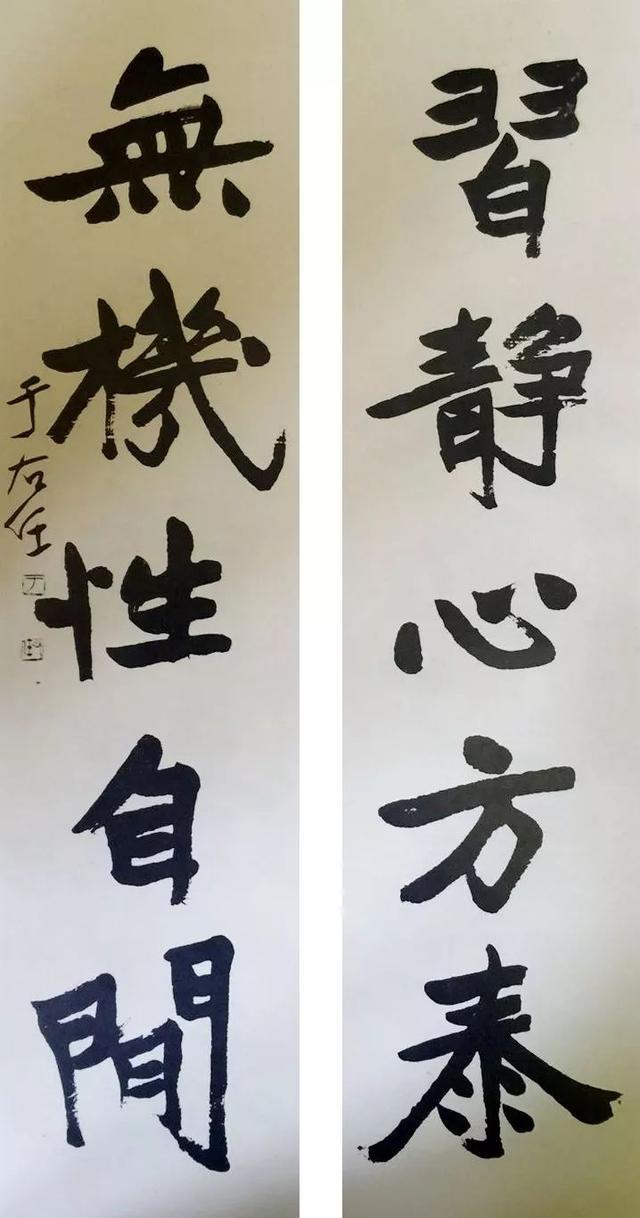 習靜心方泰
無機性自閒
于右任